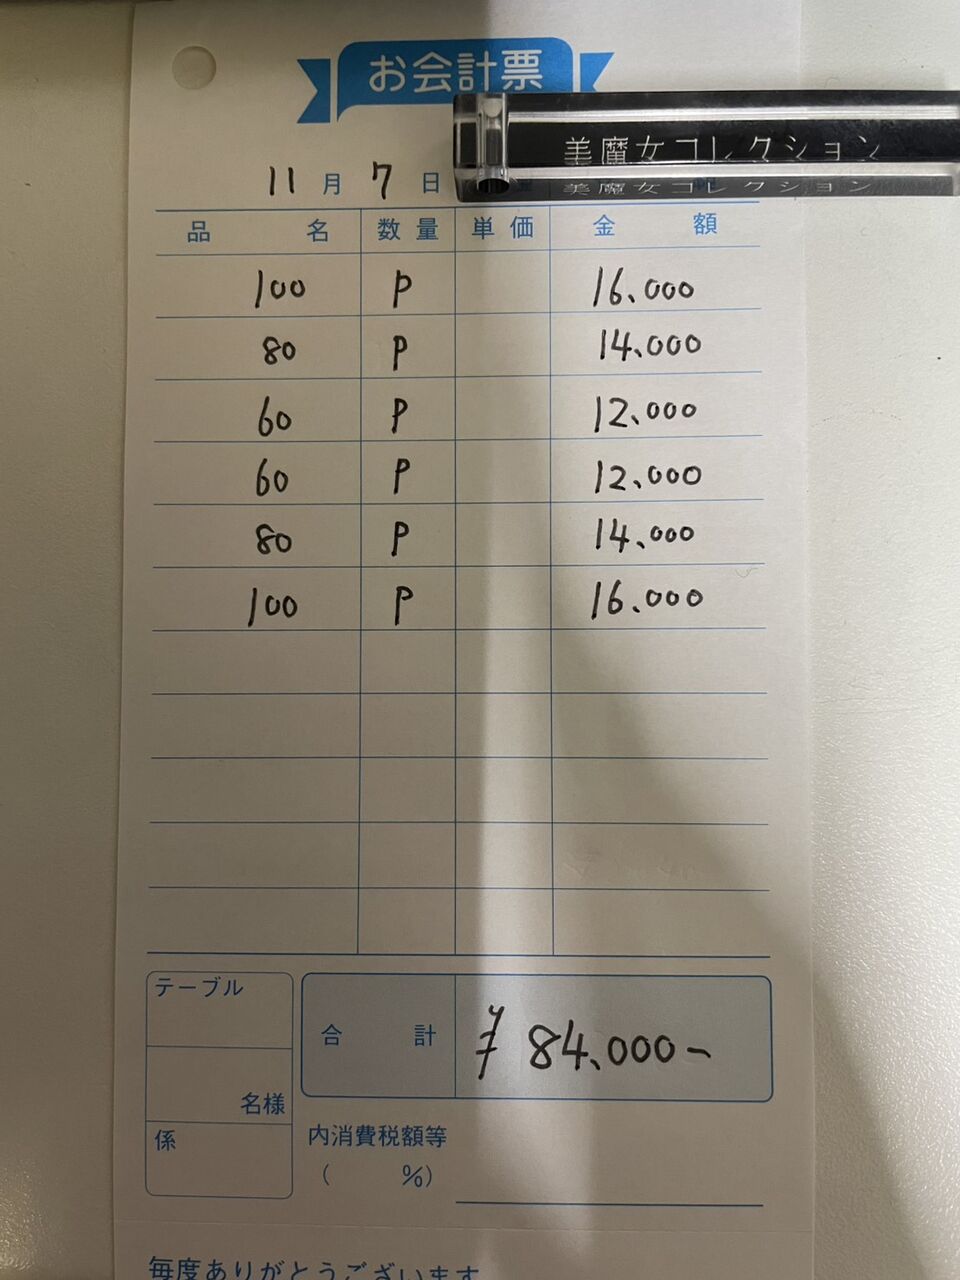 お会計票
美魔女コレクション
美魔女コレクション
11月7日
品名 数量 単価 金額
100 P 16.000
80 P 14.000
60 P 12.000
60 P 12.000
80 P 14.000
100 P 16.000
テーブル
合計 ¥84.000-
名様
係
内消費税額等
( %)
毎度ありがとうございます